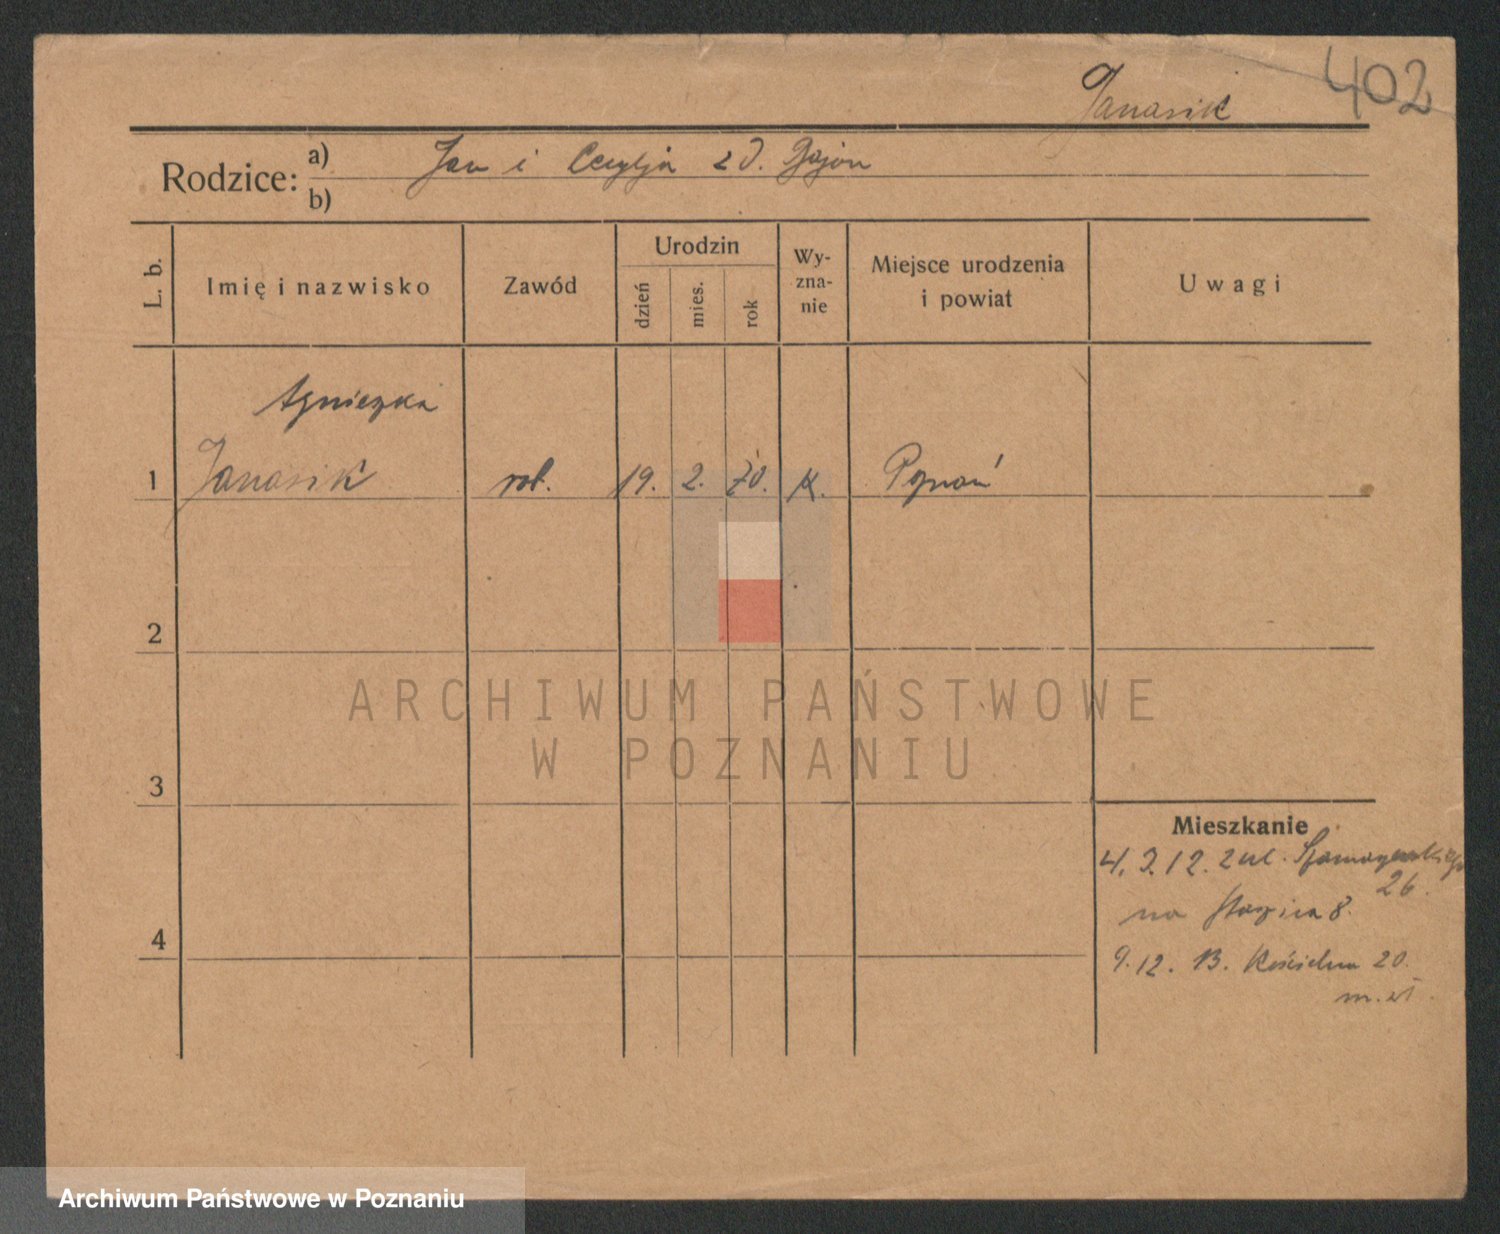 402
Janasik
Rodzice: a) Jan i Cecylja z d. Gajon
b)
L. b. Imię i nazwisko Zawód Urodzin dzień mies. rok Wy-zna-nie Miejsce urodzenia i powiat Uwagi
Agnieszka
1 Janasik rob. 19. 2. 70. K. Poznań
2
3
4
Mieszkanie
4. 3. 12. z ul.
26.
na Staszica 8.
9. 12. 13. Kościelna 20.
ARCHIWUM PAŃSTWOWE
W POZNANIU
Archiwum Państwowe w Poznaniu